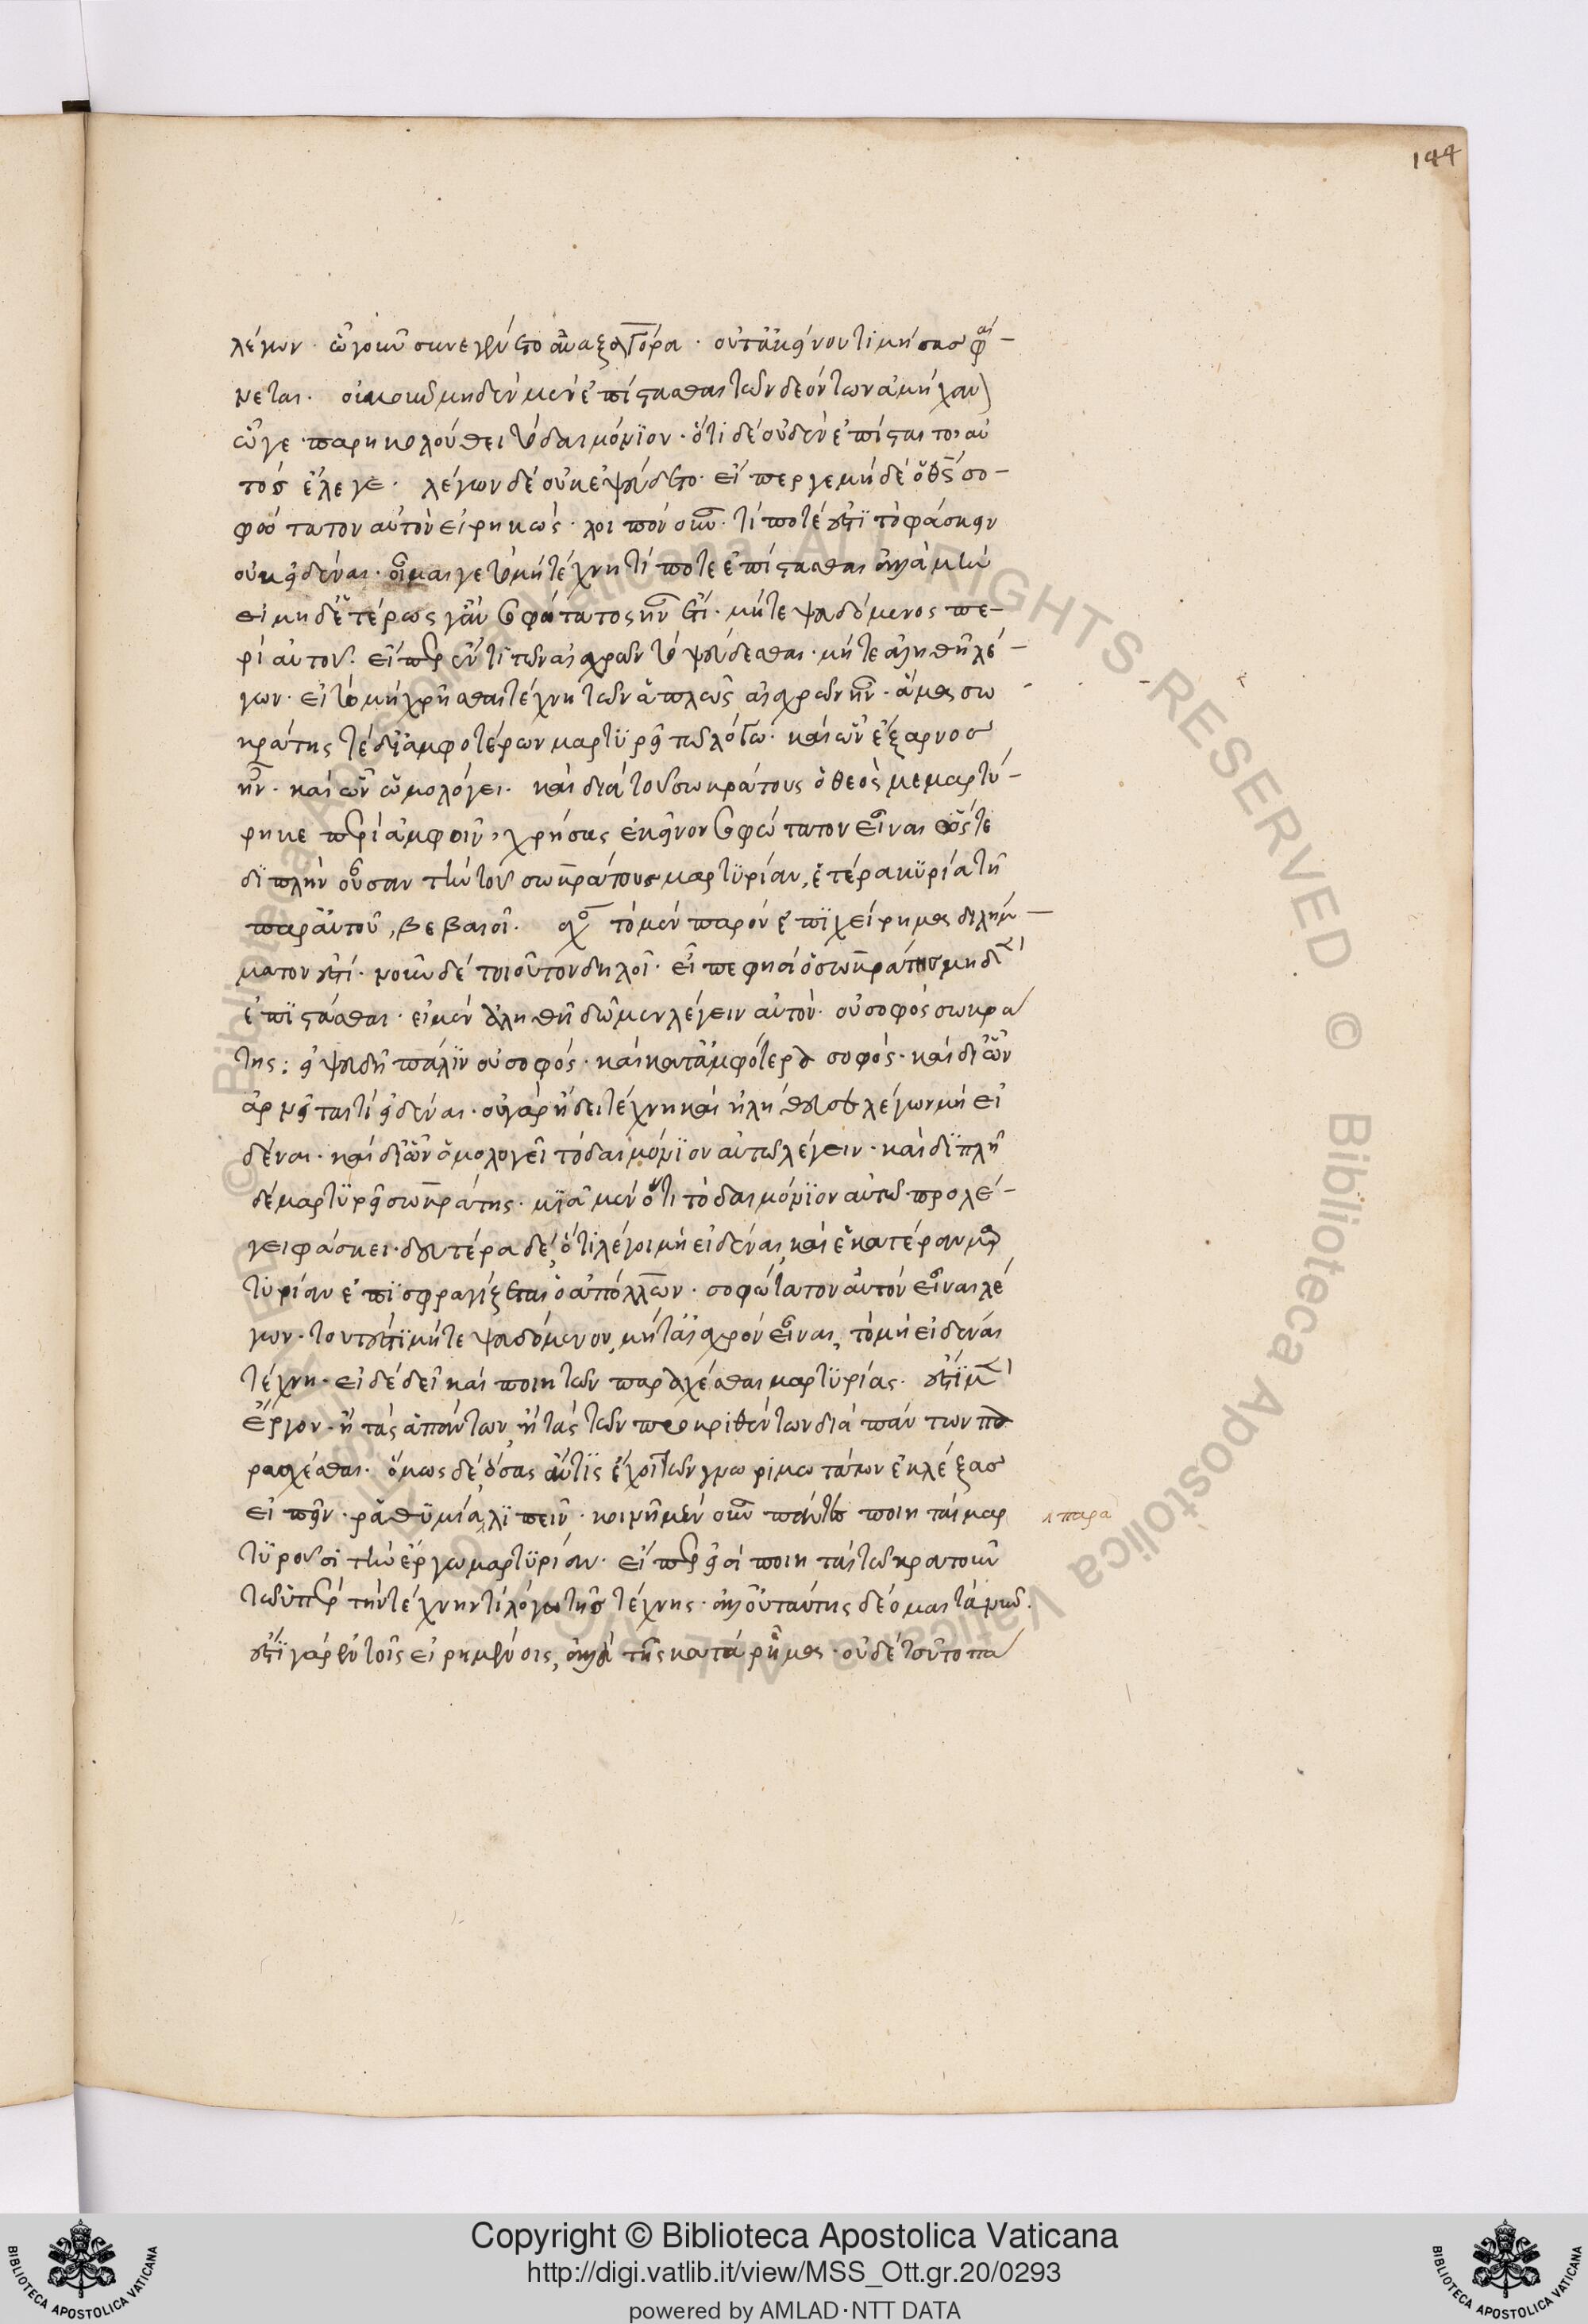 144
λέγων· ᾧ γοῦν συνεγένετο ἀναξαγόρα· οὐτ' ἐκεῖνον τιμήσας φαί-
νεται· οἴκοθεν μηδὲν μὲν ἐπίστασθαι τῶν δεόντων ἀμήχαν
ᾧγε παρηκολούθει τὸ δαιμόνιον· ὅτι δὲ οὐδὲν ἐπίσταιτο αὐ
τὸς ἔλεγε· λέγων δὲ οὐκ ἐψεύδετο· εἴπερ γε μὴ δὲ ὁ θεὸς σο-
φώτατον αὐτὸν εἰρηκώς· λοιπὸν οὖν· τί ποτέ ἐστι τὸ φάσκειν
οὐκ εἰδέναι· οἶμαι γε τὸ μὴ τέχνη τί ποτε ἐπίστασθαι ἀλλὰ μὴν
εἰ μηδετέρως γ' ἂν σοφώτατος ἦν ἔτι· μήτε ψευδόμενος πε-
ρὶ αὐτοῦ· εἴπερ ἕν τι τῶν αἰσχρῶν τὸ ψεύδεσθαι· μήτε ἀληθῆ λέ-
γων· εἰ τὸ μὴ χρῆσθαι τέχνη τῶν ἁπλῶς αἰσχρῶν ἦν· ἅμα σω
κράτης τε δι' ἀμφοτέρων μαρτυρεῖ τῷ λόγῳ· καὶ ὧν ἔξαρνος
ἦν· καὶ ὧν ὡμολόγει· καὶ διὰ τοῦ σωκράτους ὁ θεὸς μεμαρτύ-
ρηκε περὶ ἀμφοῖν, χρήσας ἐκεῖνον σοφώτατον εἶναι ὥστε
διπλῆν οὖσαν τὴν τοῦ σωκράτους μαρτυρίαν, ἑτέρα κυρία τῆ
παρ' αὐτοῦ, βεβαιοῖ· σχό τὸ μὲν παρὸν ἐπιχείρημα διλήμ-
ματον ἐστί· νοῦν δὲ τοιοῦτον δηλοῖ· εἴπε φησὶ ὁ σωκράτης μηδὲν
ἐπίστασθαι· εἰ μὲν ἀληθῆ δῶμεν λέγειν αὐτόν· οὐ σοφὸς σωκρά
της: εἰ ψευδῆ πάλιν οὐ σοφός· καὶ κατ' ἀμφότερα σοφός· καὶ δι' ὧν
ἀρνεῖται τί εἰδέναι· οὐ γὰρ ᾔδει τέχνη καὶ ἠλήθευσε λέγων μὴ εἰ
δέναι· καὶ δι' ὧν ὁμολογεῖ τὸ δαιμόνιον αὐτῷ λέγειν· καὶ διπλῆ
δὲ μαρτυρεῖ σωκράτης· μία μὲν ὅτι τὸ δαιμόνιον αὐτῷ προλέ-
γει φάσκει· δευτέρα δέ, ὅτι λέγοι μὴ εἰδέναι, καὶ ἑκατέραν μαρ
τυρίαν ἐπισφραγίζεται ὁ ἀπόλλων· σοφώτατον αὐτὸν εἶναι λέ
γων· τουτέστι μήτε ψευδόμενον, μήτ' αἰσχρὸν εἶναι, τὸ μὴ εἰδέναι
τέχνη· εἰ δὲ δεῖ καὶ ποιητῶν παρασχέσθαι μαρτυρίας· ἐστὶ μὲν
ἔργον· ἢ τὰς ἁπάντων, ἢ τὰς τῶν προκριθέντων διὰ πάντων πα
ρασχέσθαι· ὅμως δὲ ὅσας ἄν τις ἔχοι τῶν γνωριμωτάτων ἐκλέξας
εἰπεῖν· ῥαθυμία λιπεῖν· κοινῆ μὲν οὖν πάντες ποιηταὶ μαρ
⸌παρα
τυροῦσι τὴν ἔργω μαρτυρίαν· εἴπερ εἰσὶ ποιηταὶ τῶν κρατοῦν
τῶν ὑπὲρ τὴν τέχνην τί λόγω τῆς τέχνης· ἀλλ' οὐ ταύτης δέομαι τὰ νῦν·
ἐστὶ γὰρ ἐν τοῖς εἰρημένοις, ἀλλὰ τῆς κατὰ ῥῆμα· οὐδὲ τοῦτο πα
© Biblioteca Apostolica Vaticana ALL RIGHTS RESERVED
Copyright © Biblioteca Apostolica Vaticana
http://digi.vatlib.it/view/MSS_Ott.gr.20/0293
powered by AMLAD·NTT DATA
BIBLIOTECA APOSTOLICA VATICANA
BIBLIOTECA APOSTOLICA VATICANA